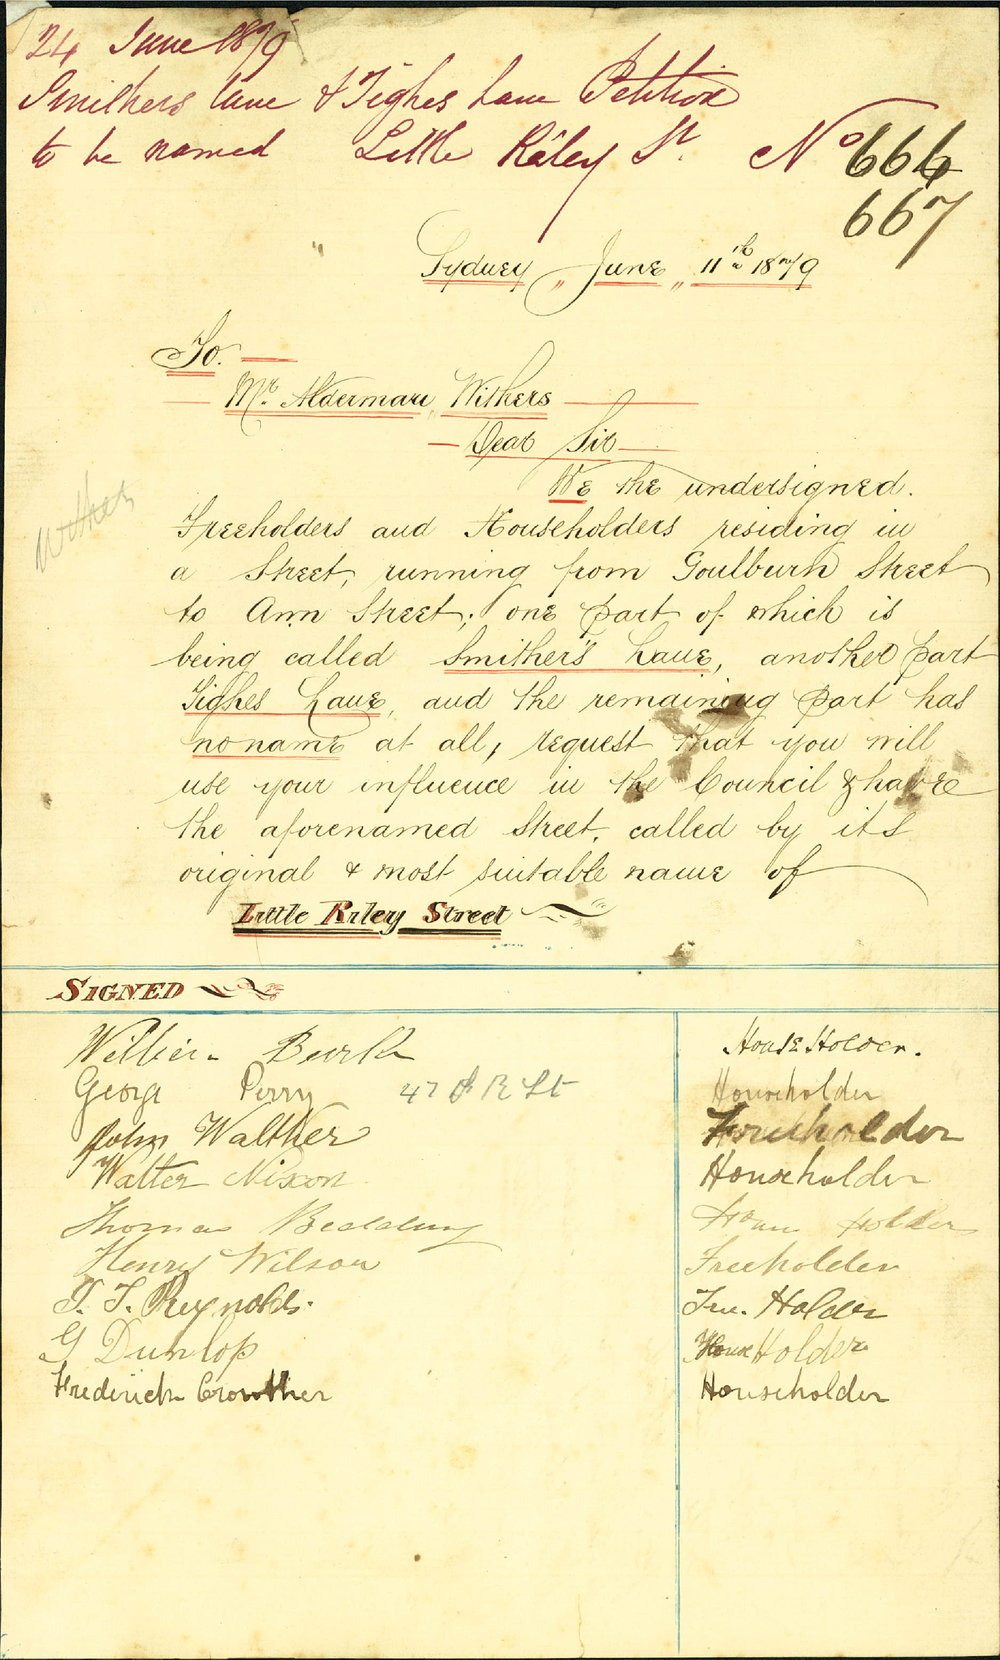 24 June 1879
Smithers lane & Tighes Lane Petition
to be named Little Riley St. No 666
667
Sydney „ June „ 11th 1879
To.
Mr. Alderman, Withers
Dear Sir
We the undersigned.
Freeholders and Householders residing in
a Street, running from Goulburn Street
to Ann Street; one part of which is
being called Smither's Lane, another part
Tighes Lane, and the remaining part has
no name at all, request that you will
use your influence in the Council & have
the aforenamed Street. called by its
original & most suitable name of
Little Riley Street
SIGNED
William Burk House Holder.
George Perry 47 L R St Householder
John Walther Freeholder
Walter Nixon Householder
Thomas Holder
Henry Wilson Freeholder
T. T. Reynolds. Free. Holder
G Dunlop House Holder
Frederick Crowther Householder